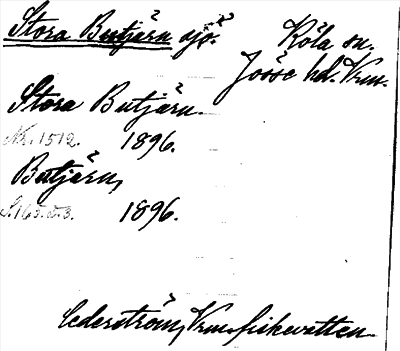 Stora Butjärn sjö.
Köla sn.
Jösse hd. Vrm.
Stora Butjärn.
Nr. 1512. 1896.
Butjärn,
S. 163. 1896.
Cederström, Vrm. fiskevatten.